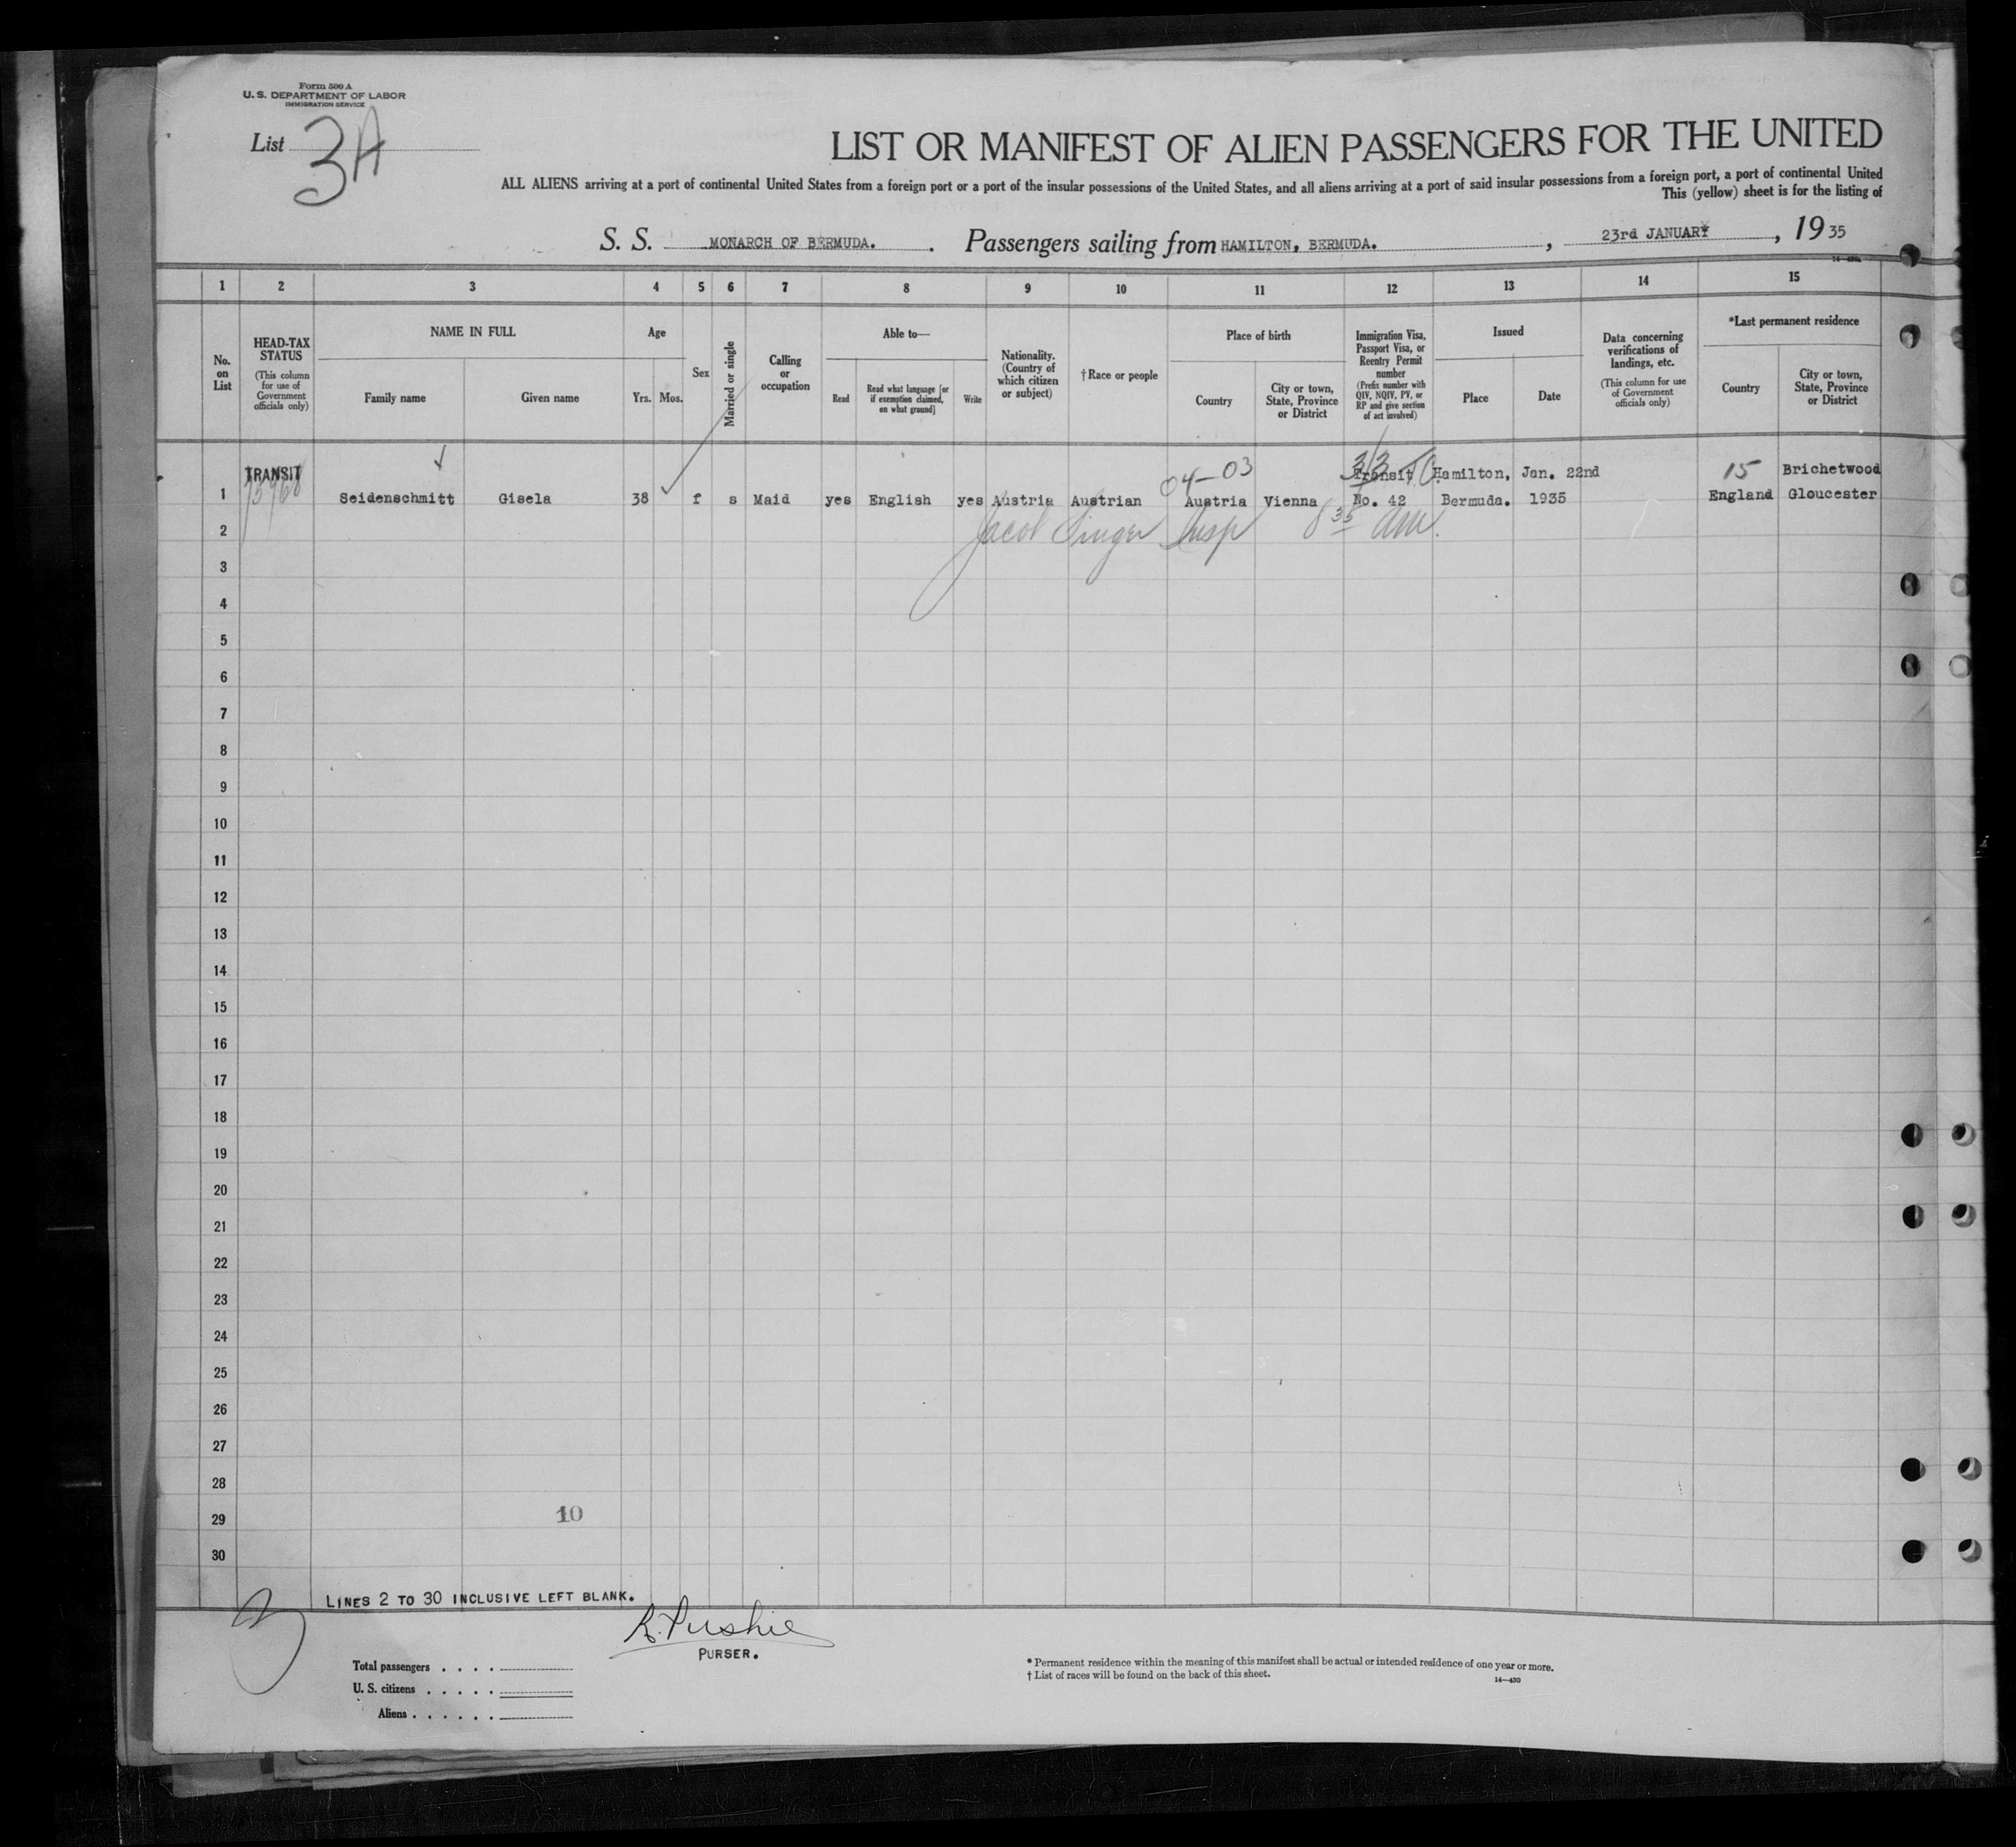 Form 500 A
U. S. DEPARTMENT OF LABOR
IMMIGRATION SERVICE
List 3A
LIST OR MANIFEST OF ALIEN PASSENGERS FOR THE UNITED
ALL ALIENS arriving at a port of continental United States from a foreign port or a port of the insular possessions of the United States, and all aliens arriving at a port of said insular possessions from a foreign port, a port of continental United
This (yellow) sheet is for the listing of
S. S. MONARCH OF BERMUDA. . Passengers sailing from HAMILTON, BERMUDA. , 23rd JANUARY , 1935
1 2 3 4 5 6 7 8 9 10 11 12 13 14 15
No. on List
HEAD-TAX STATUS
(This column for use of Government officials only)
NAME IN FULL
Family name
Given name
Age
Yrs. Mos.
Sex
Married or single
Calling or occupation
Able to—
Read
Read what language [or if exemption claimed, on what ground]
Write
Nationality. (Country of which citizen or subject)
†Race or people
Place of birth
Country
City or town, State, Province or District
Immigration Visa, Passport Visa, or Reentry Permit number
(Prefix number with QIV, NQIV, PV, or RP and give section of act involved)
Issued
Place
Date
Data concerning verifications of landings, etc.
(This column for use of Government officials only)
*Last permanent residence
Country
City or town, State, Province or District
TRANSIT 04—03 Transit Hamilton, Jan. 22nd 15 Brichetwood
1 Seidenschmitt Gisela 38 f s Maid yes English yes Austria Austrian Austria Vienna No. 42 Bermuda. 1935 England Gloucester
Jacob Singer Insp 8 35 AM.
2
3
4
5
6
7
8
9
10
11
12
13
14
15
16
17
18
19
20
21
22
23
24
25
26
27
28
29 10
30
LINES 2 TO 30 INCLUSIVE LEFT BLANK.
R. Pushie
PURSER.
Total passengers . . . .
U. S. citizens . . . . .
Aliens . . . . . .
* Permanent residence within the meaning of this manifest shall be actual or intended residence of one year or more.
† List of races will be found on the back of this sheet.
14—430